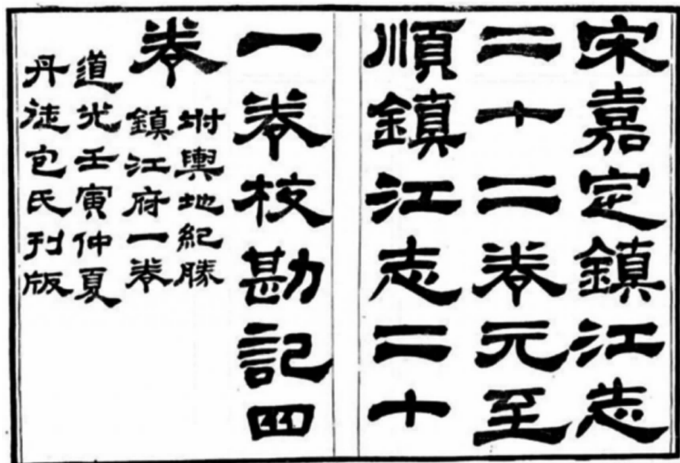 宋嘉定鎮江志
二十二卷元至
順鎮江志二十
一卷校勘記四
卷
坿輿地紀勝
鎮江府一卷
道光壬寅仲夏
丹徒包氏刊版